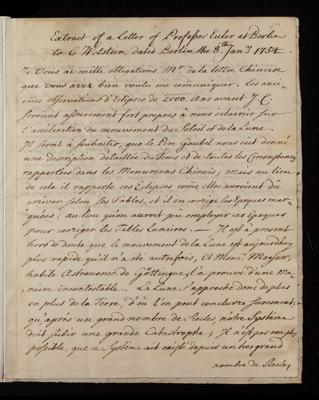 Extract of a Letter of Professor Euler at Berlin
to C Wetstein, dated Berlin the 8th Jany 1754.
Je Vous ai mille obligations Mr. de la lettre Chinoise
que vous avez bien voulu me comuniquer. Les anci-
ennes observations d'Eclipses de 2000. Ans avant J. C.
seroient assurement fort propres a nous eclaircir sur
l'acceleration du mouvement du Soleil et de la Lune.
Il seroit à souhaiter, que le Pere Gaubil nous eut donné
une description detaillée du Tems et de toutes les Circonstances
rapportées dans les Monumens Chinois; mais au lieu
de cela il rapporte ces Eclipses come elles auroient dû
arriver selon ses Tables, et il en corrige les Epoques mar-
quées; au lieu qu'on auroit pu employer ces Epoques
pour corriger les Tables Lunaires. — Il est a present
hors de doute que le mouvement de la Lune est aujourdhuy
plus rapide qu'il n'a eté autrefois, et Monsr. Mayer,
habile Astronome de Göttingue, l'a prouvé d'une ma-
niere incontestable. La Lune s'approche donc de plus
en plus de la Terre, d'où l'on peut conclure surement,
qu'après un grand nombre de Siecles nôtre Systême
doit subir une grande Catastrophe; Il n'est pas non plus
possible, que ce Systême ait existé depuis un tres grand
nombre de Siecles,